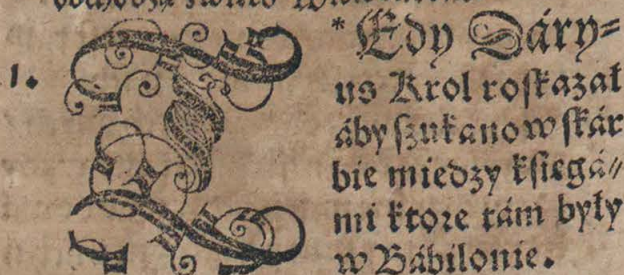 obchodzą święto
1.
I * Edy Dáry=
us Krol roskazał
áby szukano w skár
bie miedzy księgá=
mi ktore tám były
w Bábilonie.